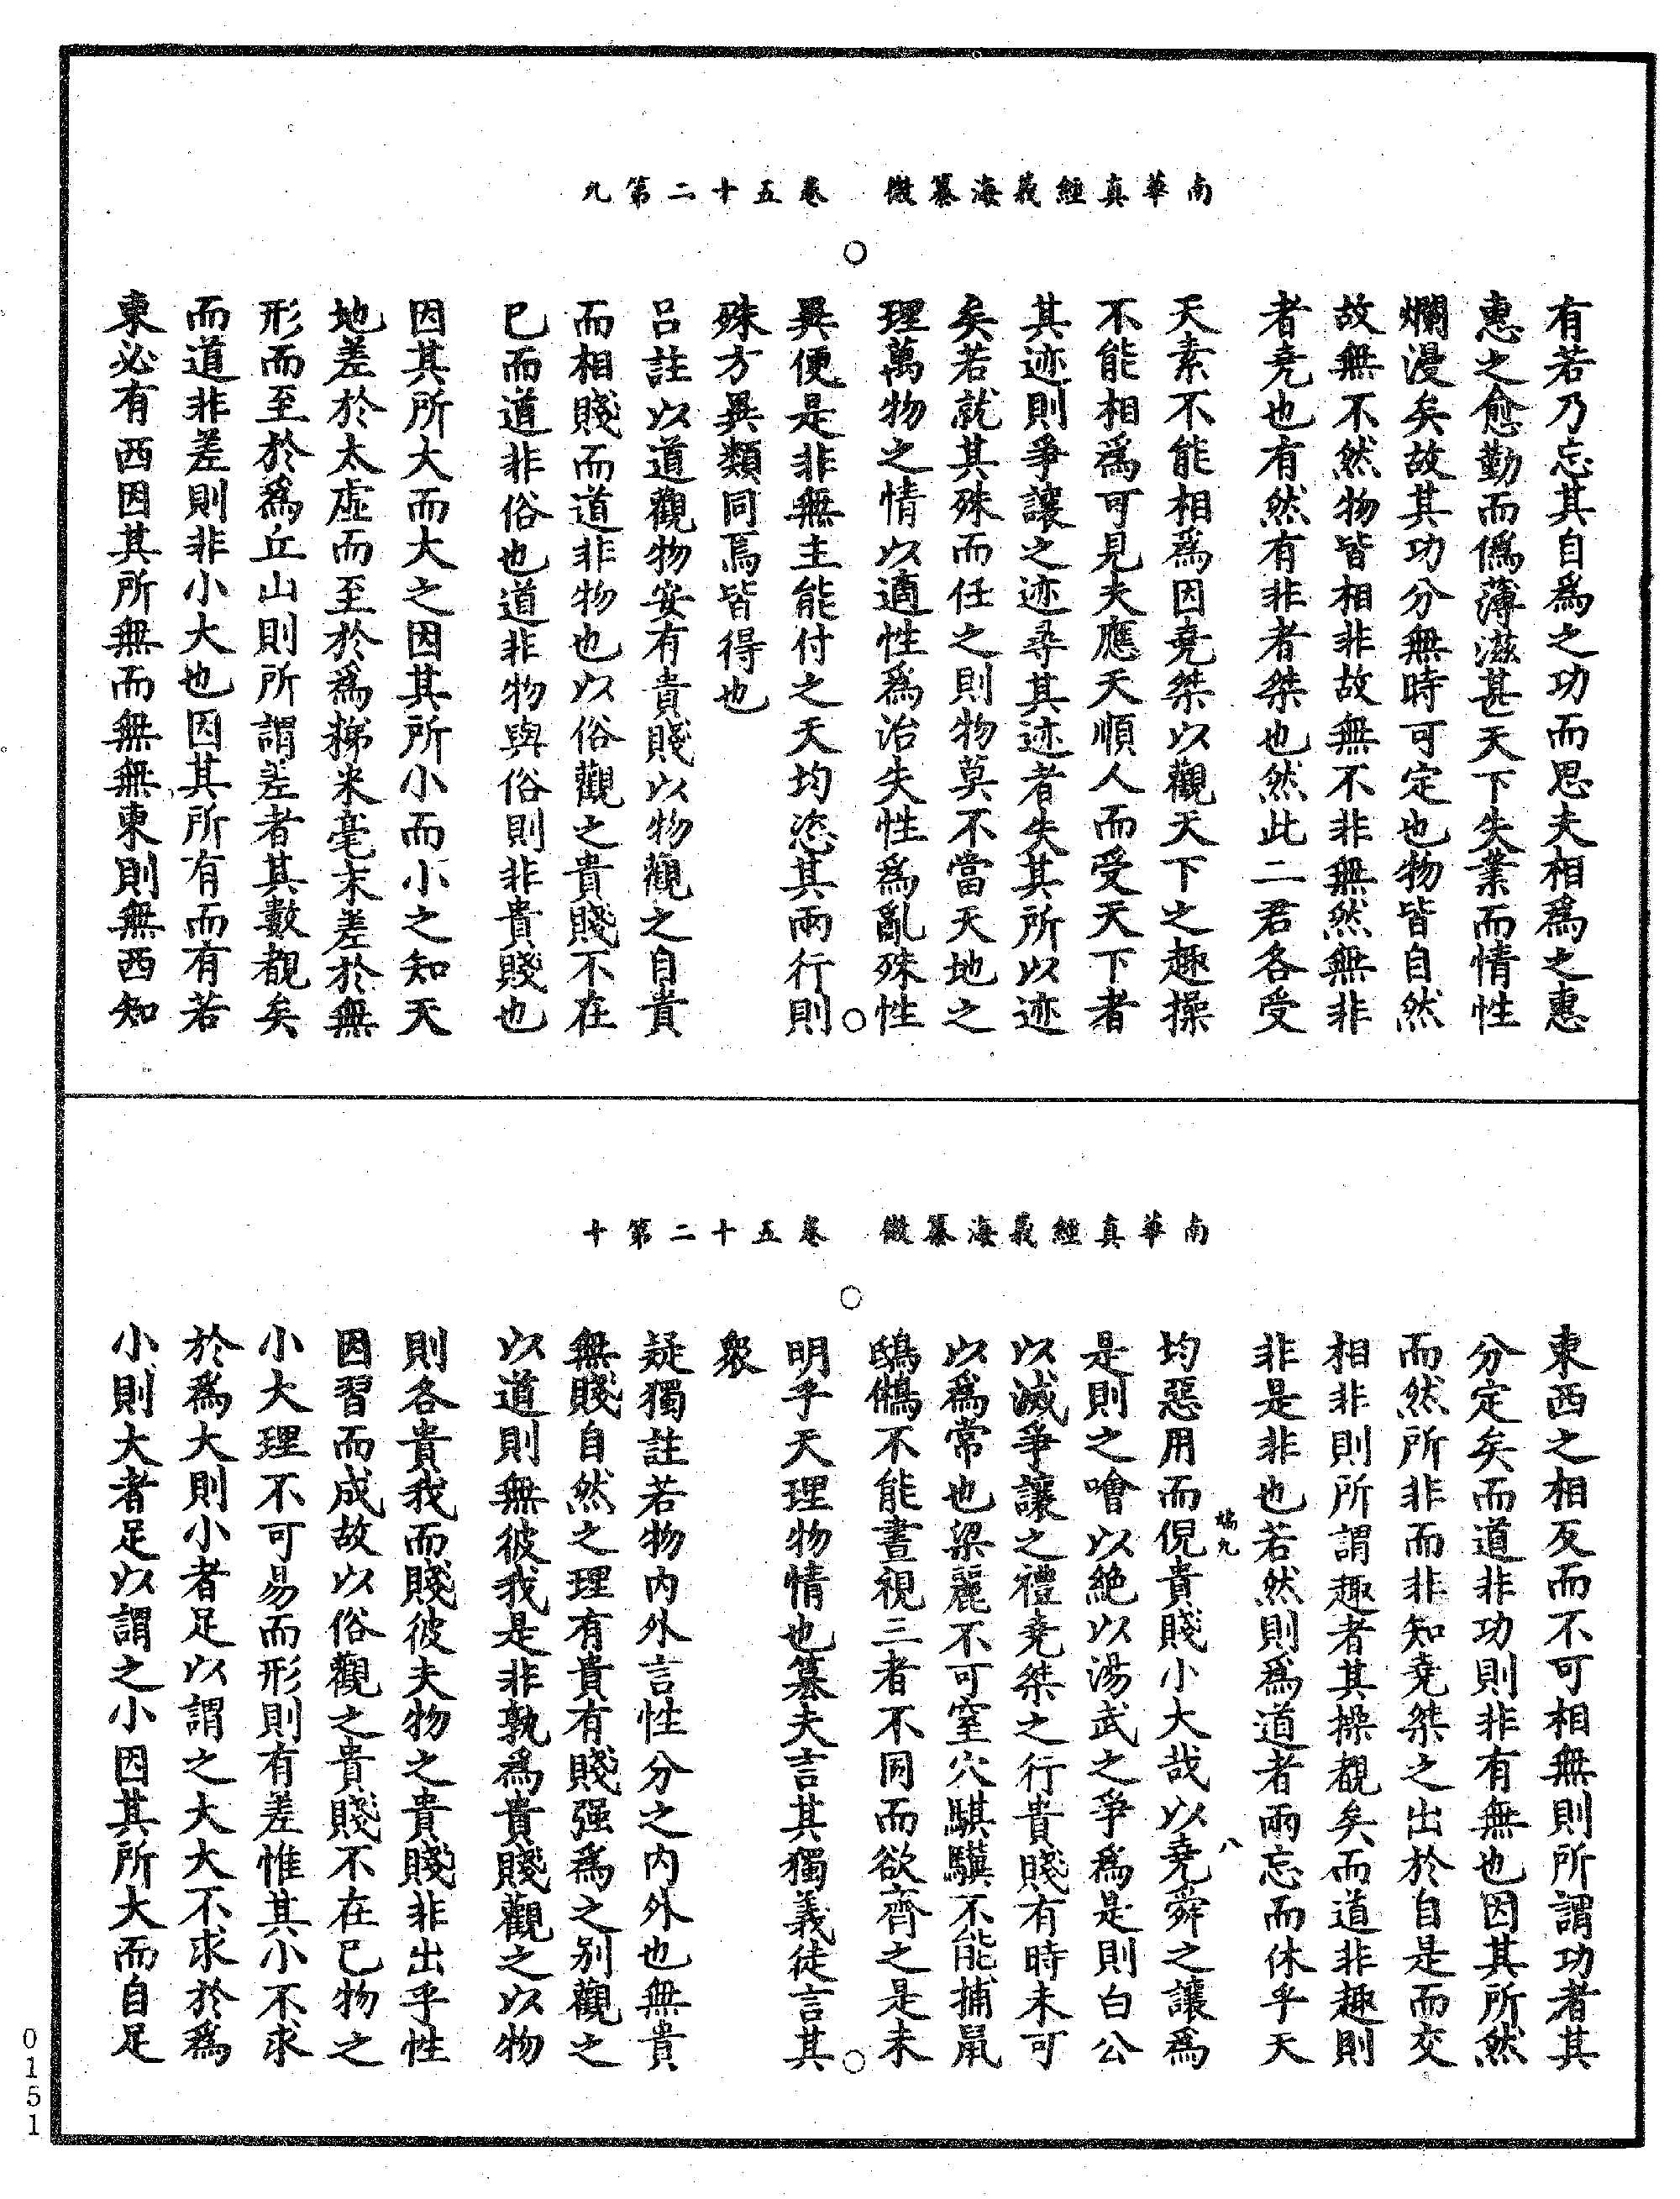 南華真經義海纂微　卷五十二第九
有若乃忘其自爲之功而思夫相爲之惠
惠之愈勤而僞薄滋甚天下失業而情性
爛漫矣故其功分無時可定也物皆自然
故無不然物皆相非故無不非無然無非
者堯也有然有非者桀也然此二君各受
天素不能相爲因堯桀以觀天下之趣操
不能相爲可見夫應天順人而受天下者
其迹則爭讓之迹尋其迹者失其所以迹
矣若就其殊而任之則物莫不當天地之
理萬物之情以適性爲治失性爲亂殊性
異便是非無主能付之天均恣其兩行則
殊方異類同焉皆得也
呂註以道觀物安有貴賤以物觀之自貴
而相賤而道非物也以俗觀之貴賤不在
已而道非俗也道非物與俗則非貴賤也
因其所大而大之因其所小而小之知天
地差於太虛而至於爲稊米毫末差於無
形而至於爲丘山則所謂差者其數覩矣
而道非差則非小大也因其所有而有若
東必有西因其所無而無無東則無西知
南華真經義海纂微　卷五十二第十
東西之相反而不可相無則所謂功者其
分定矣而道非功則非有無也因其所然
而然所非而非知堯桀之出於自是而交
相非則所謂趣者其操覩矣而道非趣則
非是非也若然則爲道者兩忘而休乎天
均惡用而倪貴賤小大哉以堯舜之讓爲
是則之噲以絶以湯武之爭爲是則白公
以滅爭讓之禮堯桀之行貴賤有時未可
以爲常也梁麗不可窒穴騏驥不能捕鼠
鴟鵂不能晝視三者不同而欲齊之是未
明乎天理物情也篡夫言其獨義徒言其
衆
疑獨註若物内外言性分之内外也無貴
無賤自然之理有貴有賤强爲之别觀之
以道則無彼我是非孰爲貴賤觀之以物
則各貴我而賤彼夫物之貴賤非出乎性
因習而成故以俗觀之貴賤不在已物之
小大理不可易而形則有差惟其小不求
於爲大則小者足以謂之大大不求於爲
小則大者足以謂之小因其所大而自足
八
0151